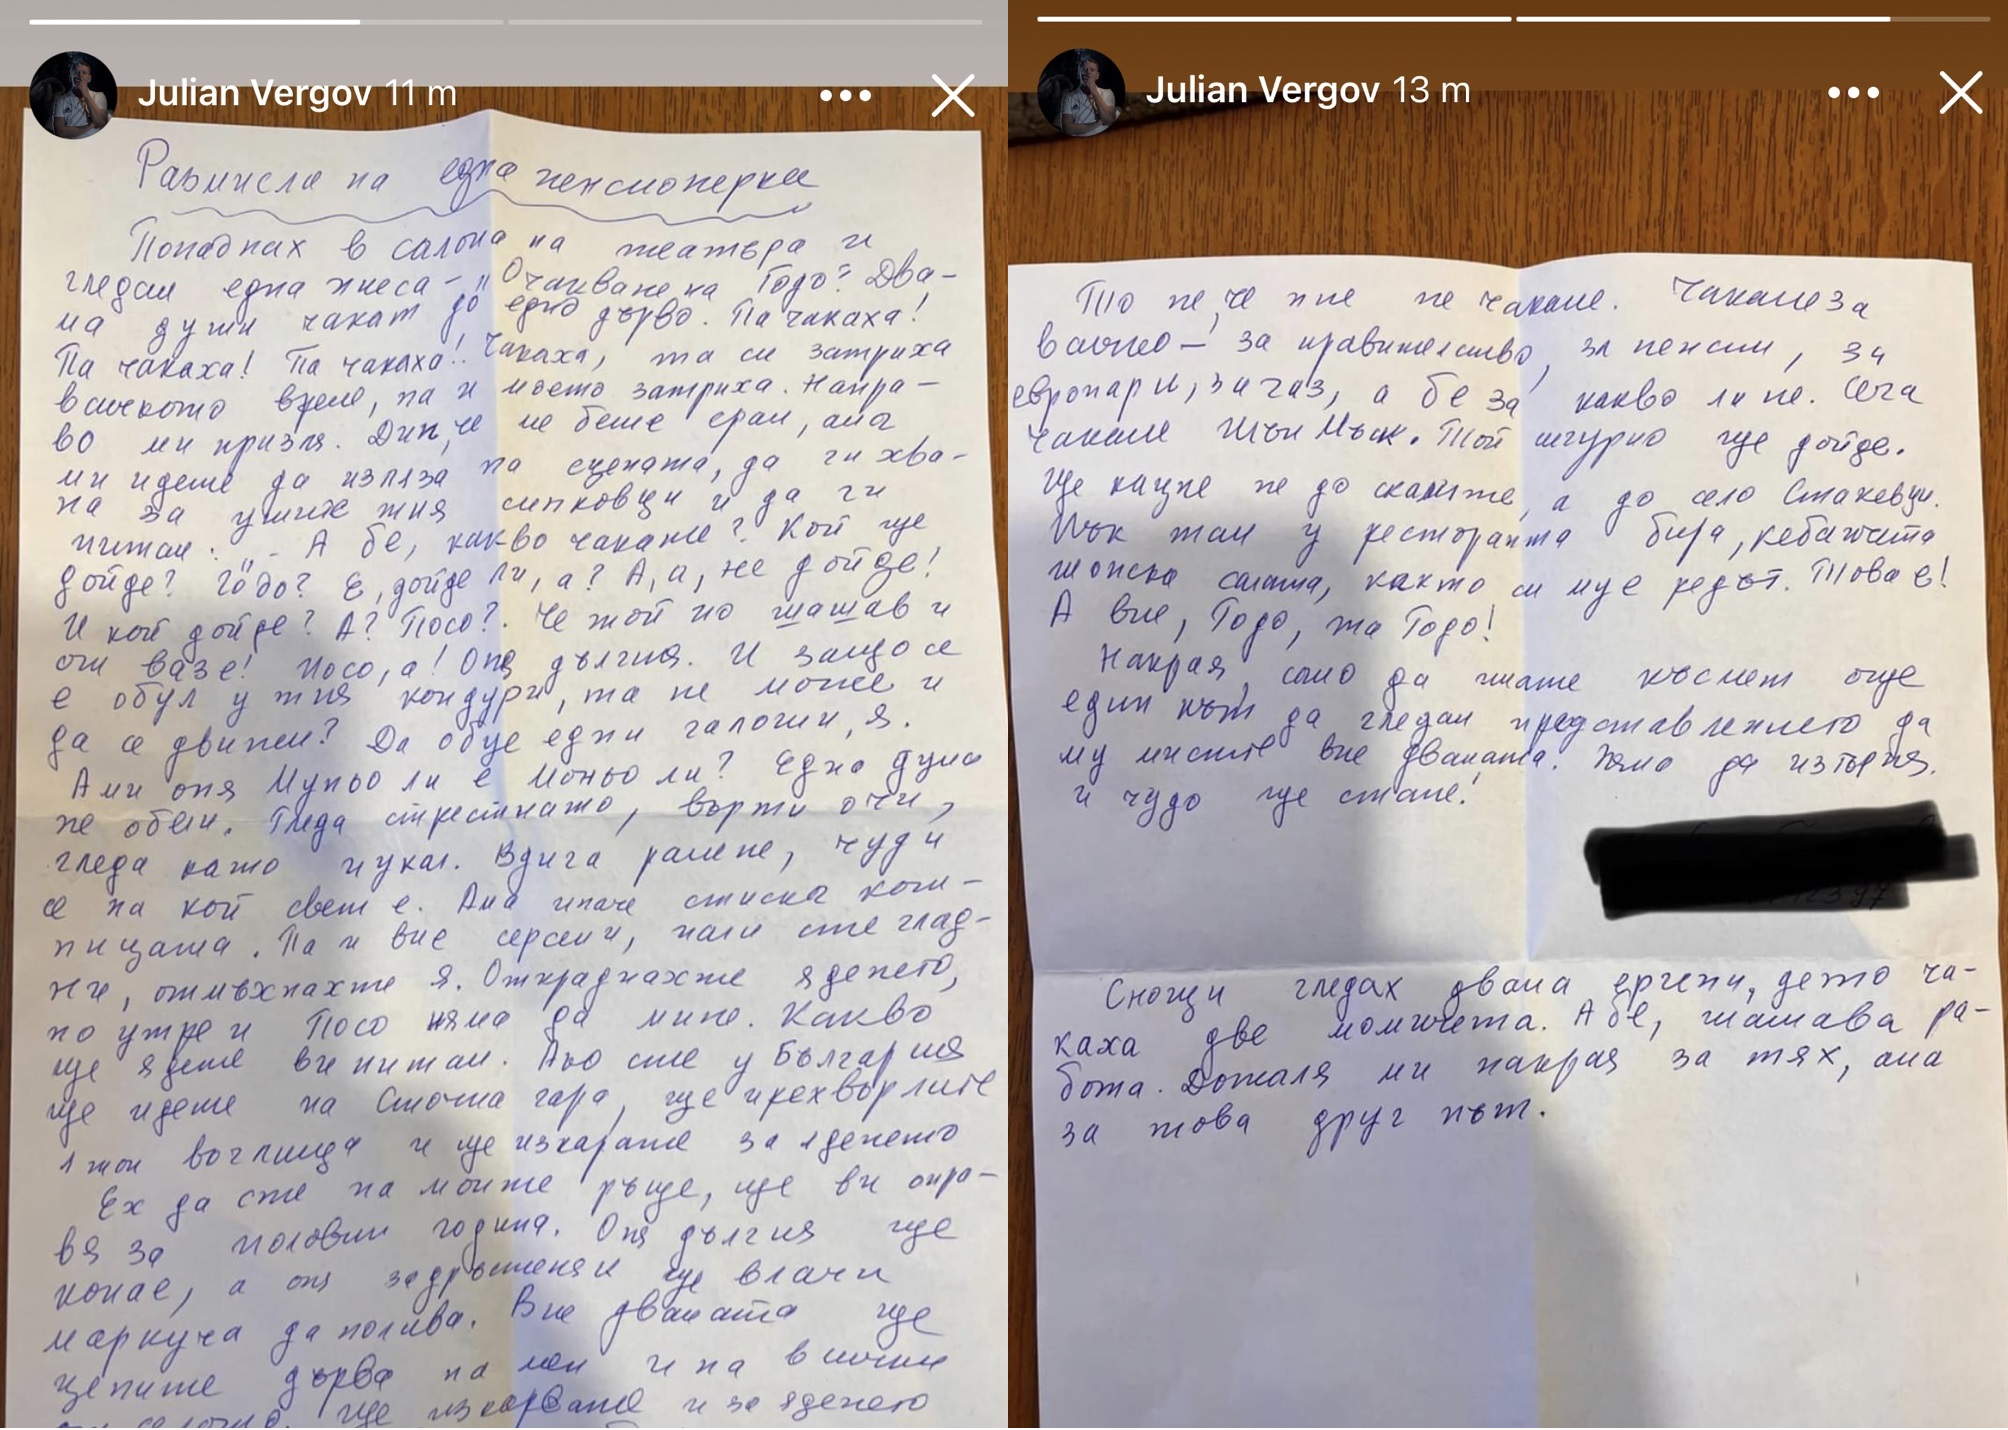 Julian Vergov 11 m
Размисли на една пенсионерка
Попаднах в салона на театъра и
гледам една пиеса – „Очакване на Годо". Два-
ма души чакат до едно дърво. Па чакаха!
Па чакаха! Па чакаха!! Чакаха, та си затриха
всичкото време, па и моето затриха. Напра-
во ми призля. Дип, че не беше срам, ама
ми идеше да изляза на сцената, да ги хва-
на за ушите тия сипковци и да ги
питам: „- А бе, какво чакате? Кой ще
дойде? Годо? Е, дойде ли, а? А, а, не дойде!
И кой дойде? А? Посо?. Че той по шашав и
от вазе! Посо, а! Оня дългия. И защо се
е обул у тия кондури, та не може и
да се движи? Да обуе едни галоши, я.
Ами оня Муньо ли е Моньо ли? Една дума
не обели. Гледа стреснато, върти очи,
гледа като чукал. Вдига рамене, чуди
се на кой свет е. Ама иначе стиска кош-
ницата. Па и вие серсеми, нали сте глад-
ни, отмъкнахте я. Откраднахте яденето,
но утре и Посо няма да мине. Какво
ще ядете ви питам. Ако сте у България
ще идете на Сточна гара, ще прехвърлите
1 тон воглища и ще изкарате за яденето
Ех да сте на моите ръце, ще ви опра-
вя за половин година. Оня дългия ще
копае, а оня задръстеняк ще влачи
маркуча да полива. Вие двамата ще
цепите дърва на мен и на всички
ще изкарвате и за яденето
Julian Vergov 13 m
То не, че ние не чакаме. Чакаме за
важно – за правителство, за пенсии, за
европари, за газ, а бе за какво ли не. Сега
чакаме Илън Мъск. Той сигурно ще дойде.
Ще кацне не до скалите, а до село Стакевци.
Пък там у ресторанта бира, кебапчета
шопска салата, както си му е редът. Това е!
А вие, Годо, та Годо!
Накрая, само да имате късмет още
един път да гледам представлението да
му мислите вие двамата. Няма да изтърпя.
и чудо ще стане!
Снощи гледах двама ергени, дето ча-
каха две момичета. А бе, шашава ра-
бота. Дожаля ми накрая за тях, ама
за това друг път.